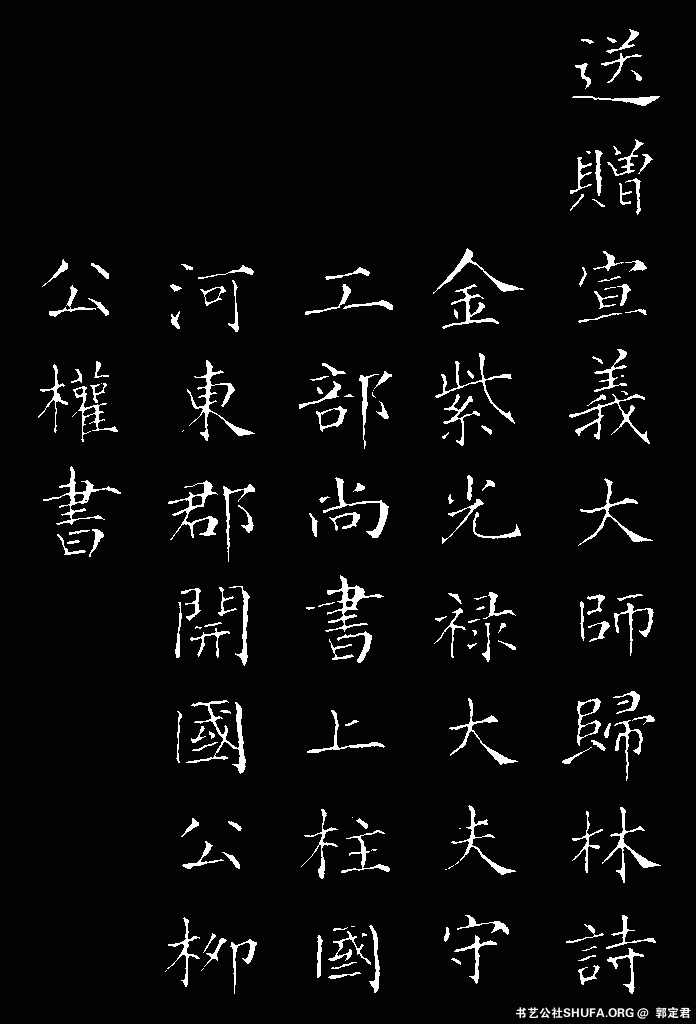 送贈宣義大師歸林詩
金紫光禄大夫守
工部尚書上柱國
河東郡開國公柳
公權書
书艺公社SHUFA.ORG @ 郭定君